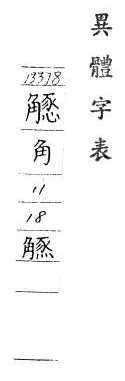 異體字表
13378
角
11
18